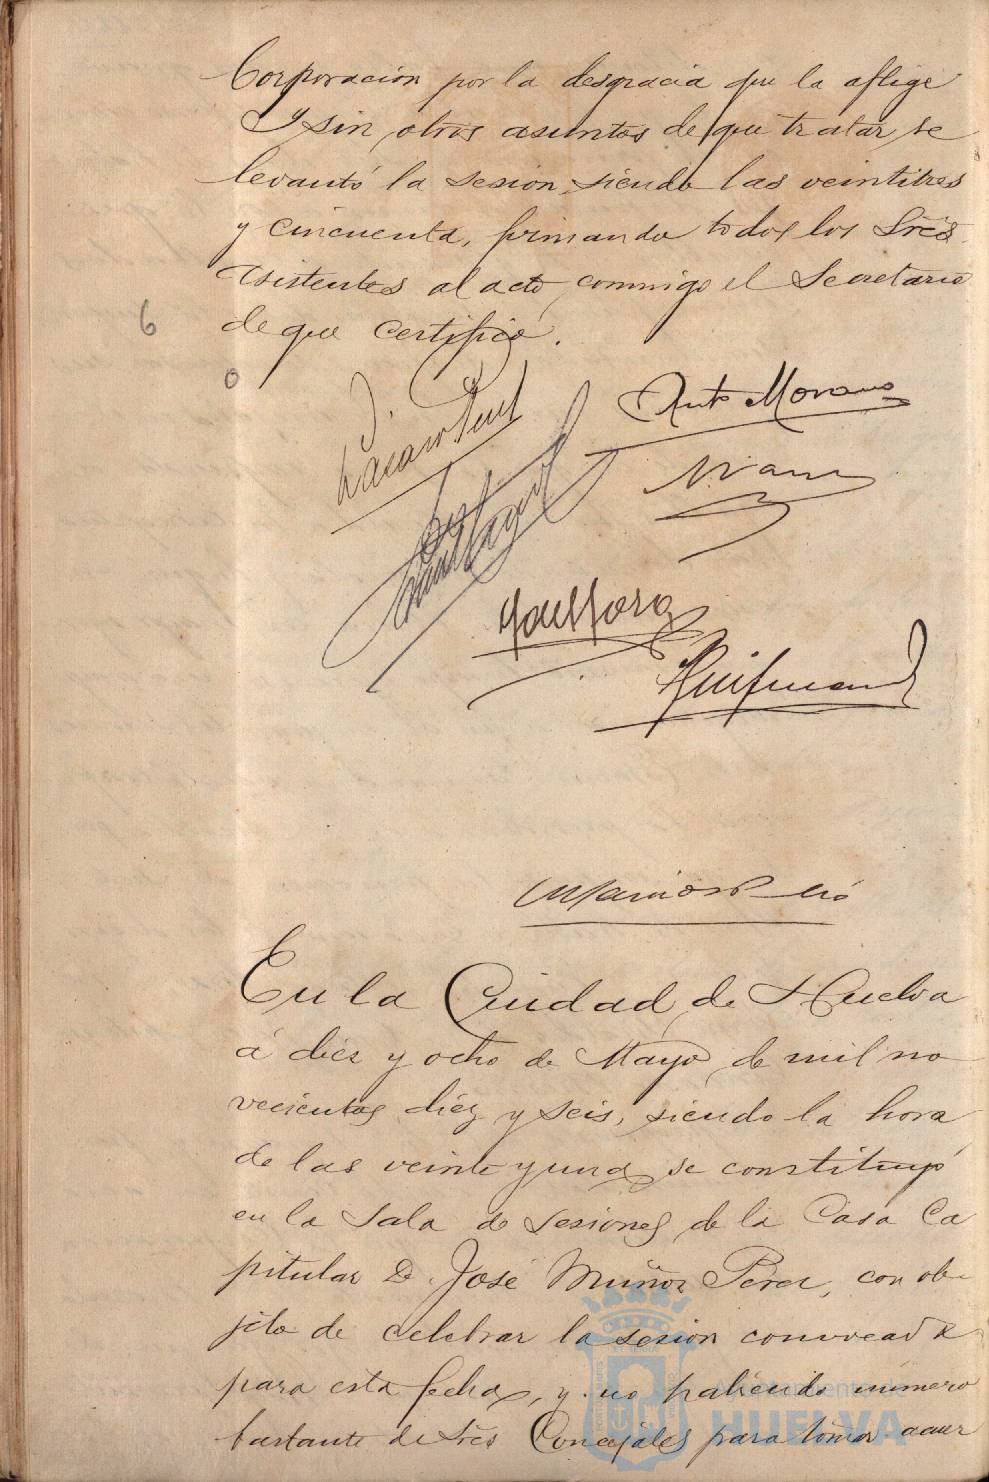 Corporación por la desgracia que la aflige
Y sin otros asuntos de que tratar se
levantó la sesion, siendo las veintitres
y cincuenta, firmando todos los Sres
asistentes al acto, conmigo el Secretario
de que certifico.
6
o
Anto Moreno
En la Ciudad de Huelva
á diez y ocho de Mayo, de mil no
vecientos diéz y seis, siendo la hora
de las veinte y una, se constituyó
en la Sala de Sesiones, de la Casa Ca
pitular D. José Muñoz Perez, con ob-
jeto de celebrar la sesion convocada
para esta fecha, y no habiendo número
bastante de Sres Concejales para tomar acuer
Ayuntamiento de
HUELVA